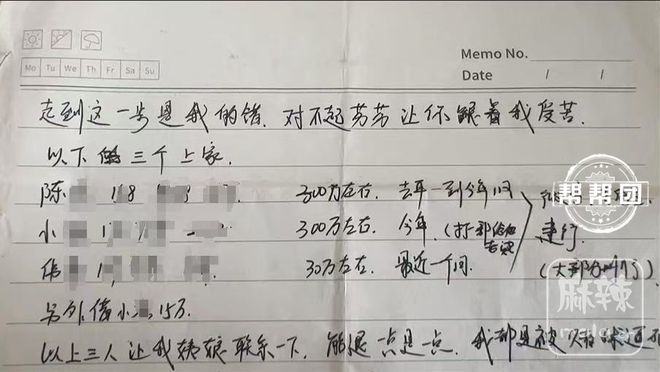 Memo No.
Mo Tu We Th Fr Sa Su
Date / /
走到这一步是我的错. 对不起芳芳让你跟着我受苦.
以下三个上家.
陈 118 300万左右. 去年一到今年
小 1 300万左右. 今年. (打
伟 1 30万左右. 最近一个间.
建行.
(大部分
帮帮团
另外借小 15万.
麻辣
以上三人让我姨娘联系一下, 能退一点是一点. 我都是被